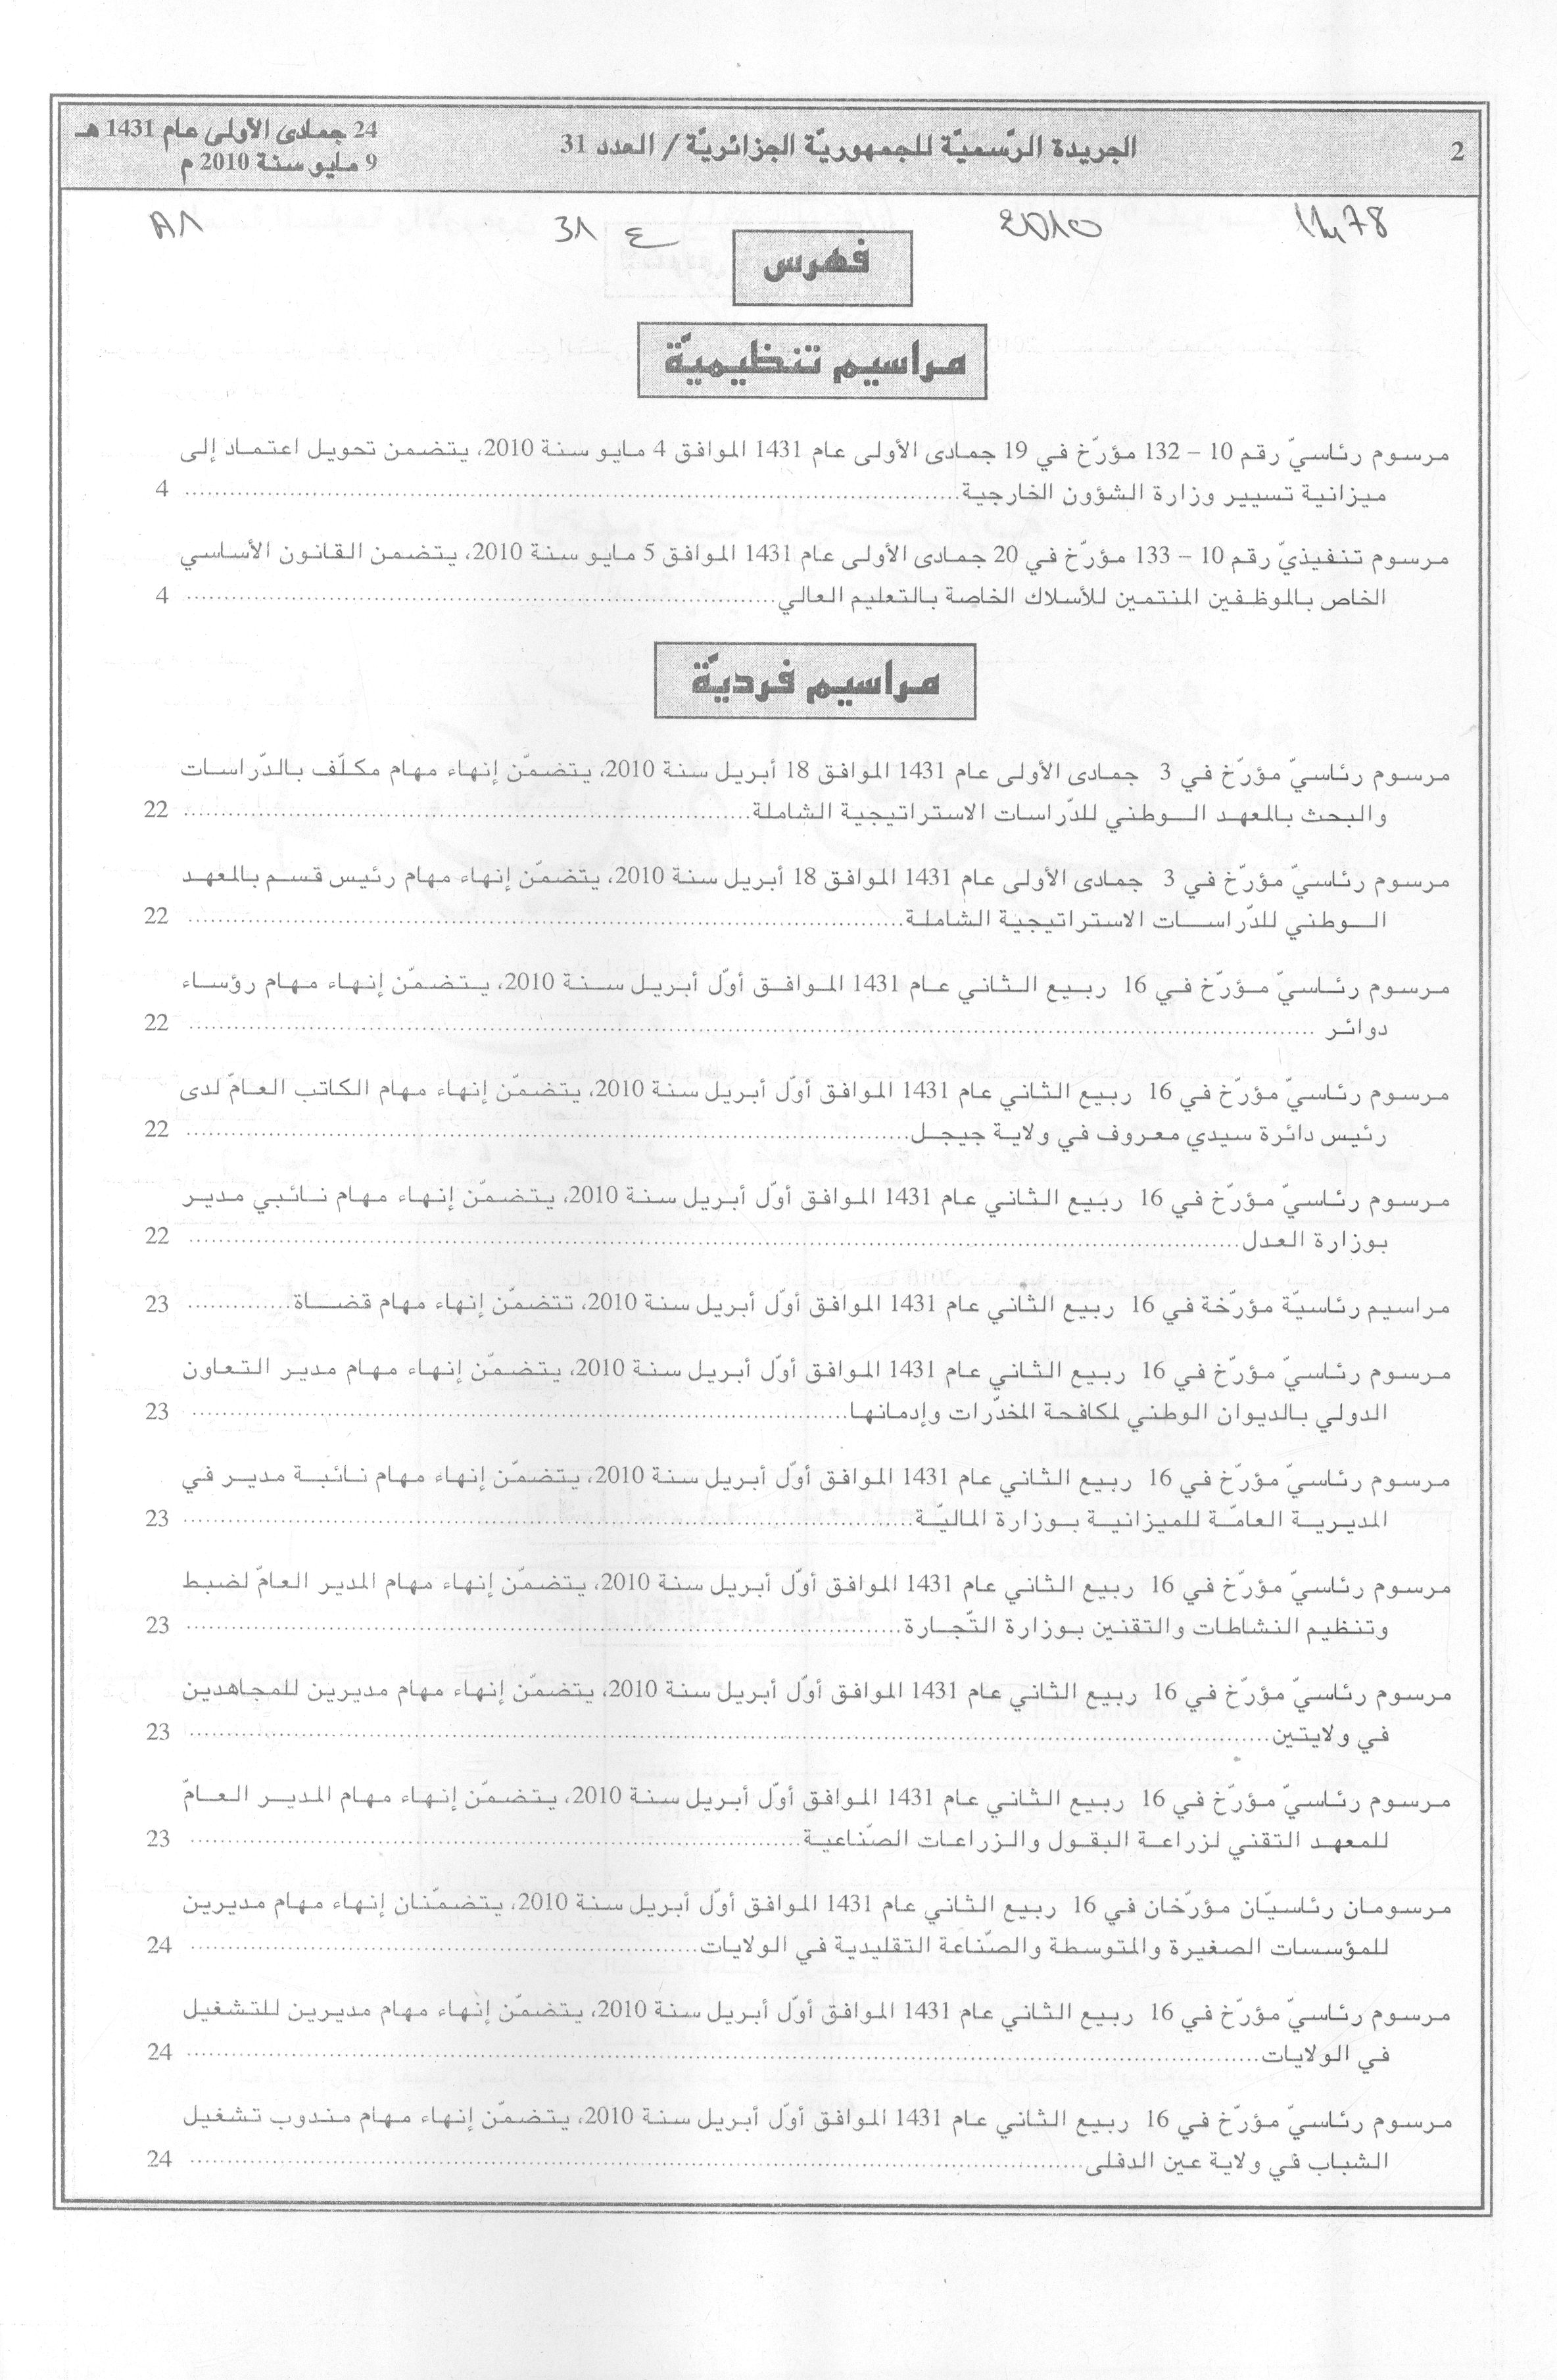 2
الجريدة الرّسميّة للجمهوريّة الجزائريّة / العدد 31
24 جمادى الأولى عام 1431 هـ
9 مايو سنة 2010 م
2010
ع 31
فهرس
مراسيم تنظيميّة
مرسوم رئاسيّ رقم 10 – 132 مؤرّخ في 19 جمادى الأولى عام 1431 الموافق 4 مايو سنة 2010، يتضمن تحويل اعتماد إلى
ميزانية تسيير وزارة الشؤون الخارجية .......... 4
مرسوم تنفيذيّ رقم 10 – 133 مؤرّخ في 20 جمادى الأولى عام 1431 الموافق 5 مايو سنة 2010، يتضمن القانون الأساسي
الخاص بالموظفين المنتمين للأسلاك الخاصة بالتعليم العالي .......... 4
مراسيم فرديّة
مرسوم رئاسيّ مؤرّخ في 3 جمادى الأولى عام 1431 الموافق 18 أبريل سنة 2010، يتضمّن إنهاء مهام مكلّف بالدّراسات
والبحث بالمعهد الوطني للدّراسات الاستراتيجية الشاملة .......... 22
مرسوم رئاسيّ مؤرّخ في 3 جمادى الأولى عام 1431 الموافق 18 أبريل سنة 2010، يتضمّن إنهاء مهام رئيس قسم بالمعهد
الوطني للدّراسات الاستراتيجية الشاملة .......... 22
مرسوم رئاسيّ مؤرّخ في 16 ربيع الثاني عام 1431 الموافق أوّل أبريل سنة 2010، يتضمّن إنهاء مهام رؤساء
دوائر .......... 22
مرسوم رئاسيّ مؤرّخ في 16 ربيع الثاني عام 1431 الموافق أوّل أبريل سنة 2010، يتضمّن إنهاء مهام الكاتب العامّ لدى
رئيس دائرة سيدي معروف في ولاية جيجل .......... 22
مرسوم رئاسيّ مؤرّخ في 16 ربيع الثاني عام 1431 الموافق أوّل أبريل سنة 2010، يتضمّن إنهاء مهام نائبي مدير
بوزارة العدل .......... 22
مراسيم رئاسيّة مؤرّخة في 16 ربيع الثاني عام 1431 الموافق أوّل أبريل سنة 2010، تتضمّن إنهاء مهام قضاة .......... 23
مرسوم رئاسيّ مؤرّخ في 16 ربيع الثاني عام 1431 الموافق أوّل أبريل سنة 2010، يتضمّن إنهاء مهام مدير التعاون
الدولي بالديوان الوطني لمكافحة المخدّرات وإدمانها .......... 23
مرسوم رئاسيّ مؤرّخ في 16 ربيع الثاني عام 1431 الموافق أوّل أبريل سنة 2010، يتضمّن إنهاء مهام نائبة مدير في
المديرية العامّة للميزانية بوزارة الماليّة .......... 23
مرسوم رئاسيّ مؤرّخ في 16 ربيع الثاني عام 1431 الموافق أوّل أبريل سنة 2010، يتضمّن إنهاء مهام المدير العامّ لضبط
وتنظيم النشاطات والتقنين بوزارة التّجارة .......... 23
مرسوم رئاسيّ مؤرّخ في 16 ربيع الثاني عام 1431 الموافق أوّل أبريل سنة 2010، يتضمّن إنهاء مهام مديرين للمجاهدين
في ولايتين .......... 23
مرسوم رئاسيّ مؤرّخ في 16 ربيع الثاني عام 1431 الموافق أوّل أبريل سنة 2010، يتضمّن إنهاء مهام المدير العامّ
للمعهد التقني لزراعة البقول والزراعات الصّناعية .......... 23
مرسومان رئاسيّان مؤرّخان في 16 ربيع الثاني عام 1431 الموافق أوّل أبريل سنة 2010، يتضمّنان إنهاء مهام مديرين
للمؤسسات الصغيرة والمتوسطة والصّناعة التقليدية في الولايات .......... 24
مرسوم رئاسيّ مؤرّخ في 16 ربيع الثاني عام 1431 الموافق أوّل أبريل سنة 2010، يتضمّن إنهاء مهام مديرين للتشغيل
في الولايات .......... 24
مرسوم رئاسيّ مؤرّخ في 16 ربيع الثاني عام 1431 الموافق أوّل أبريل سنة 2010، يتضمّن إنهاء مهام مندوب تشغيل
الشباب في ولاية عين الدفلى .......... 24